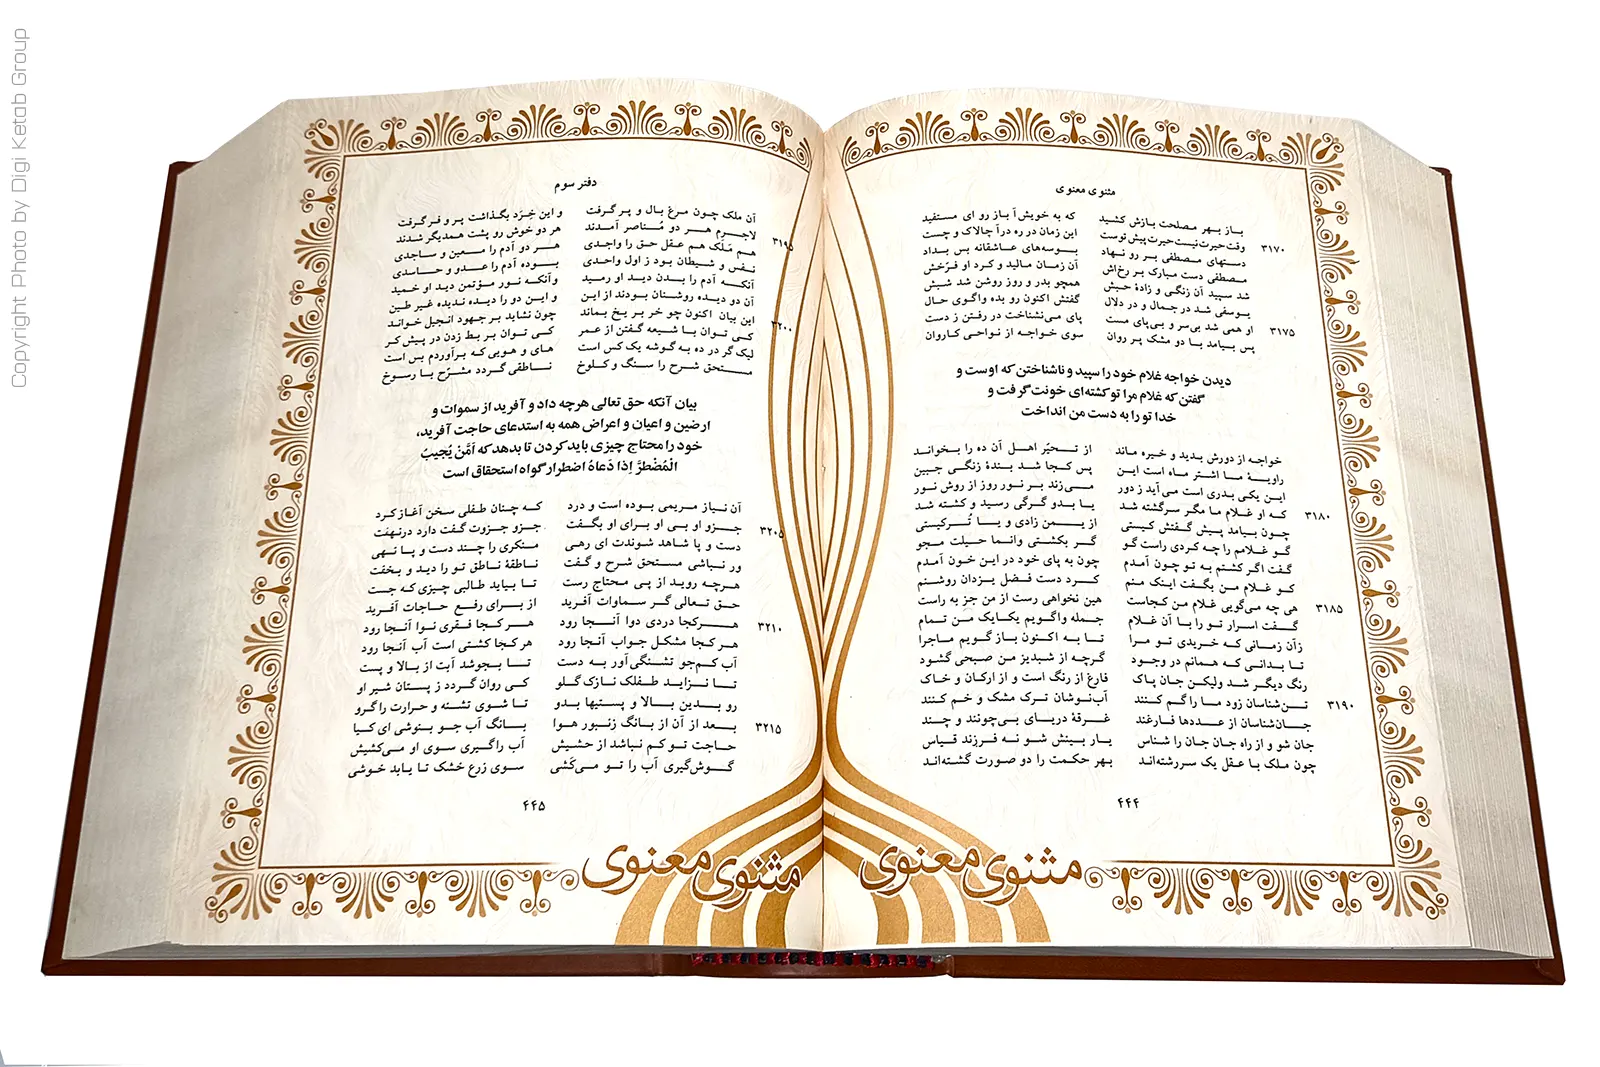 مثنوی معنوی
باز بهر مصلحت بازش کشید که به خویش آ باز رو ای مستفید
۳۱۷۰ وقت حیرت نیست حیرت پیش توست این زمان در ره درآ چالاک و چست
دستهای مصطفی بر رو نهاد بوسه‌های عاشقانه بس بداد
مصطفی دست مبارک بر رخ‌اش آن زمان مالید و کرد او فرّخش
شد سپید آن زنگی و زادهٔ حبش همچو بدر و روز روشن شد شبش
یوسفی شد در جمال و در دلال گفتش اکنون رو بده واگوی حال
۳۱۷۵ او همی شد بی‌سر و بی‌پای مست پای می‌نشناخت در رفتن ز دست
پس بیامد با دو مشک پر روان سوی خواجه از نواحی کاروان
دیدن خواجه غلام خود را سپید و ناشناختن که اوست و
گفتن که غلام مرا تو کشته‌ای خونت گرفت و
خدا تو را به دست من انداخت
خواجه از دورش بدید و خیره ماند از تحیّر اهل آن ده را بخواند
راویهٔ ما اشتر ماه است این پس کجا شد بندهٔ زنگی جبین
این یکی بدری است می‌آید ز دور می‌زند بر نور روز از روش نور
۳۱۸۰ که او غلام ما مگر سرگشته شد یا بدو گرگی رسید و کشته شد
چون بیامد پیش گفتش کیستی از یمن زادی و یا تُرکیستی
گو غلامم را چه کردی راست گو گر بکشتی وانما حیلت مجو
گفت اگر کشتم به تو چون آمدم چون به پای خود در این خون آمدم
کو غلام من بگفت اینک منم کرد دست فضل یزدان روشنم
۳۱۸۵ هی چه می‌گویی غلام من کجاست هین نخواهی رست از من جز به راست
گفت اسرار تو را با آن غلام جمله واگویم یکایک من تمام
زآن زمانی که خریدی تو مرا تا به اکنون باز گویم ماجرا
تا بدانی که همانم در وجود گرچه از شبدیز من صبحی گشود
رنگ دیگر شد ولیکن جان پاک فارغ از رنگ است و از ارکان و خاک
۳۱۹۰ تن‌شناسان زود ما را گم کنند آب‌نوشان ترک مشک و خم کنند
جان‌شناسان از عددها فارغند غرقهٔ دریای بی‌چونند و چند
جان شو و از راه جان جان را شناس یار بینش شو نه فرزند قیاس
چون ملک با عقل یک سررشته‌اند بهر حکمت را دو صورت گشته‌اند
۴۴۴
مثنوی معنوی
دفتر سوم
آن ملک چون مرغ بال و پر گرفت و این خِرَد بگذاشت پر و فر گرفت
۳۱۹۵ لاجرم هر دو مُناصر آمدند هر دو خوش رو پشت همدیگر شدند
هم مَلَک هم عقل حق را واجدی هر دو آدم را معین و ساجدی
نفس و شیطان بود ز اول واحدی بوده آدم را عدو و حاسدی
آنکه آدم را بدن دید او رمید وآنکه نور مؤتمن دید او خمید
آن دو دیده روشنان بودند از این و این دو را دیده ندیده غیر طین
۳۲۰۰ این بیان اکنون چو خر بر یخ بماند چون نشاید بر جهود انجیل خواند
کی توان با شیعه گفتن از عمر کی توان بر بط زدن در پیش کر
لیک گر در ده به گوشه یک کس است های و هویی که برآوردم بس است
مستحق شرح را سنگ و کلوخ ناطقی گردد مشرّح با رسوخ
بیان آنکه حق تعالی هرچه داد و آفرید از سموات و
ارضین و اعیان و اعراض همه به استدعای حاجت آفرید،
خود را محتاج چیزی باید کردن تا بدهد که اَمَّنْ یُجیبُ
الْمُضْطَرَّ اِذا دَعاهُ اضطرار گواه استحقاق است
آن نیاز مریمی بوده است و درد که چنان طفلی سخن آغاز کرد
۳۲۰۵ جزو او بی او برای او بگفت جزو جزوت گفت دارد در نهفت
دست و پا شاهد شوندت ای رهی منکری را چند دست و پا نهی
ور نباشی مستحق شرح و گفت ناطقهٔ ناطق تو را دید و بخفت
هرچه روید از پی محتاج رست تا بیابد طالبی چیزی که جست
حق تعالی گر سماوات آفرید از برای رفع حاجات آفرید
۳۲۱۰ هرکجا دردی دوا آنجا رود هر کجا فقری نوا آنجا رود
هر کجا مشکل جواب آنجا رود هر کجا کشتی است آب آنجا رود
آب کم‌جو تشنگی آور به دست تا بجوشد آبت از بالا و پست
تا نزاید طفلک نازک گلو کی روان گردد ز پستان شیر او
رو بدین بالا و پستیها بدو تا شوی تشنه و حرارت را گرو
۳۲۱۵ بعد از آن از بانگ زنبور هوا بانگ آب جو بنوشی ای کیا
حاجت تو کم نباشد از حشیش آب را گیری سوی او می‌کشیش
گوش گیری آب را تو می‌کَشی سوی زرع خشک تا یابد خوشی
۴۴۵
مثنوی معنوی
Copyright Photo by Digi Ketab Group